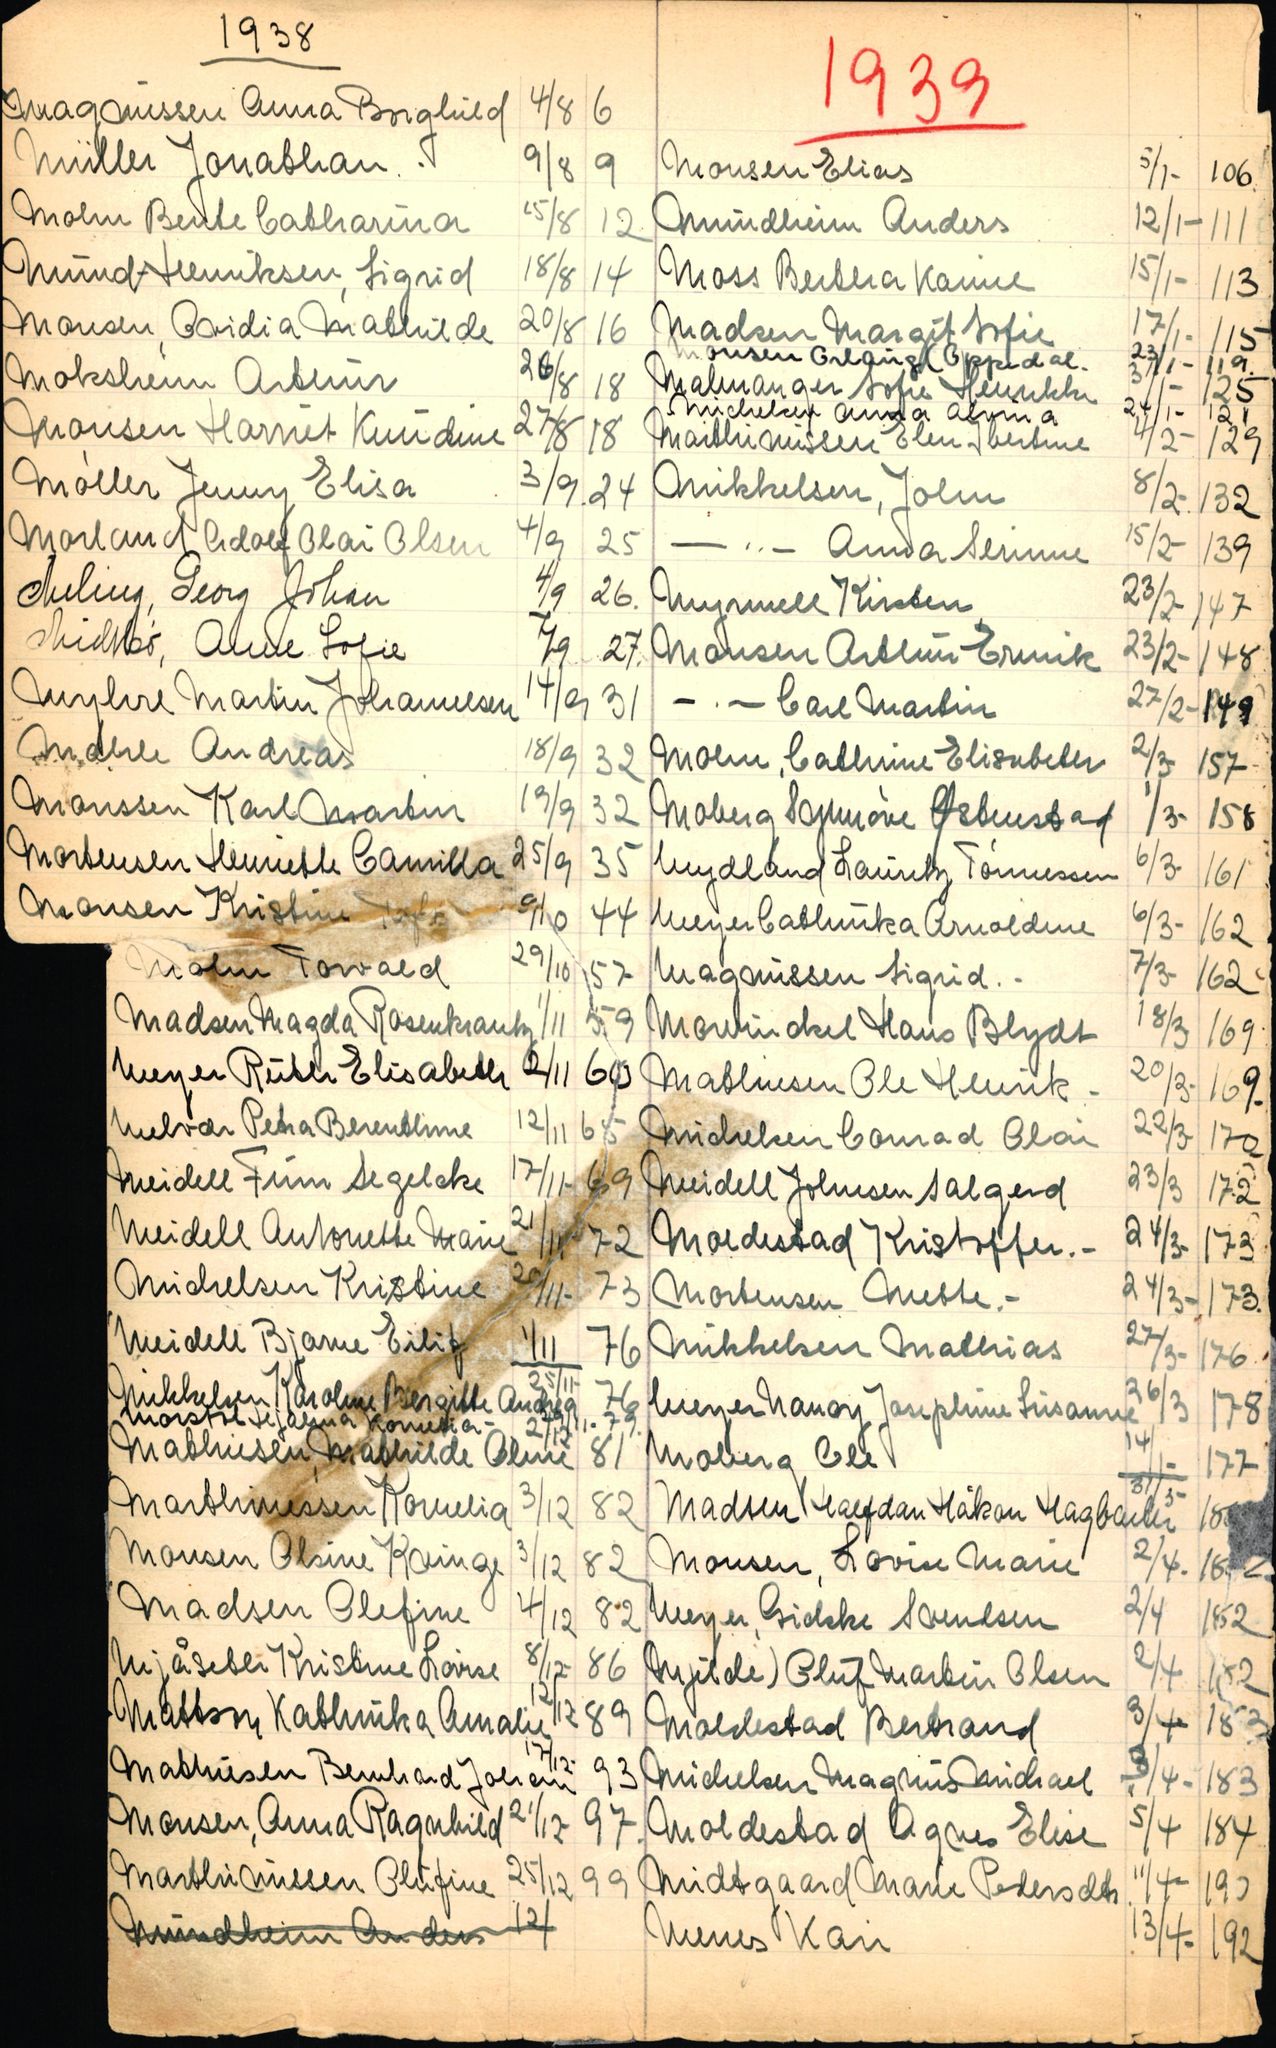 1938
Magnussen Anna Borghild 4/8 6
Müller Jonathan. 9/8 9
Molm Bente Catharina 15/8 12
Mund-Henriksen, Sigrid 18/8 14
Monsen, Ovidia Mathilde 20/8 16
Moksheim Arthur 26/8 18
Monsen Harriet Kundine 27/8 18
Möller Jenny Elisa 3/9 24
Morland Adolf Olai Olsen 4/9 25
Meling, Georg Johan 4/9 26.
Midtbö, Anne Sofie 7/9 27.
Myhre Martin Johannesen 14/9 31
Mæhle Andreas 18/9 32
Monssen Karl Martin 19/9 32
Mortensen Henriette Camilla 25/9 35
Monsen Kristine 9/10 44
Molm Torvald 29/10 57
Madsen Magda Rosenkrantz 1/11 59
Meyer Ruth Elisabeth 2/11 60
Melvær Petra Berenthine 12/11 65
Meidell Finn Segelcke 17/11- 69
Meidell Antonette Marie 21/11 72
Michelsen Kristine 20/11- 73
Meidell Bjarne Eilif 1/11 76
Mikkelsen Karoline Bergitte Andrea 25/11 76
Kornelia- 79.
Mathiesen, Mathilde Oline 2/12 81
Marthinussen Kornelia 3/12 82
Monsen Olsine Kvinge 3/12 82
Madsen Olefine 4/12 82
Mjåseth Kristine Lovise 8/12- 86
Mattson Kathinka Amalie 12/12 89
Mathiesen Bernhard Johan 17/12- 93
Monsen, Anna Ragnhild 21/12- 97.
Marthinussen Olufine 25/12 99
Mundheim Anders 12/
1939
Monsen Elias 5/1- 106
Mundheim Anders 12/1- 111
Moss Berthea Karine 15/1- 113
Madsen Margit Sofie 17/1- 115
Monsen Erling Oppedal. 23/1- 119.
Malmanger Sofie Henrikke 31/1- 125
Michelsen Anna Alvina 24/1- 121
Marthinussen Elen Ibertine 4/2- 129
Mikkelsen, John 8/2- 132
— ·· — Anna Serine 15/2- 139
Myrmell Kirsten 23/2- 147
Monsen Arthur Ermik 23/2- 148
— · — Carl Martin 27/2- 149
Molm, Cathrine Elisabeth 2/3- 157
Moberg Synnöve Østenstad 1/3- 158
Mydland Lauritz Tönnessen 6/3- 161
Meyer Cathinka Arnoldine 6/3- 162
Magnussen Sigrid.- 7/3- 162
Mowinckel Hans Blydt 18/3 169
Mathiesen Ole Henrik - 20/3- 169.
Michelsen Conrad Olai 22/3- 170
Meidell Johnsen Salgerd 23/3 172
Moldestad Kristoffer.- 24/3- 173
Mortensen Mette.- 24/3- 173.
Mikkelsen Mathias 27/3- 176
Meyer Nancy Josephine Susanne 26/3 178
Moberg Ole 14/1- 177
Madsen Halfdan Håkon Hagbarth 31/3-
Monsen, Lovise Marie 2/4.
Meyer, Gidske Svendsen 2/4 182
Mjelde) Oluf Martin Olsen 2/4 182
Moldestad Bertrand 3/4- 183
Michelsen Magnus Michael 3/4- 183
Moldestad Agnes Elise 5/4 184
Midtgaard Marie Pedersdtr 11/4- 190
Menes Kari 13/4- 192